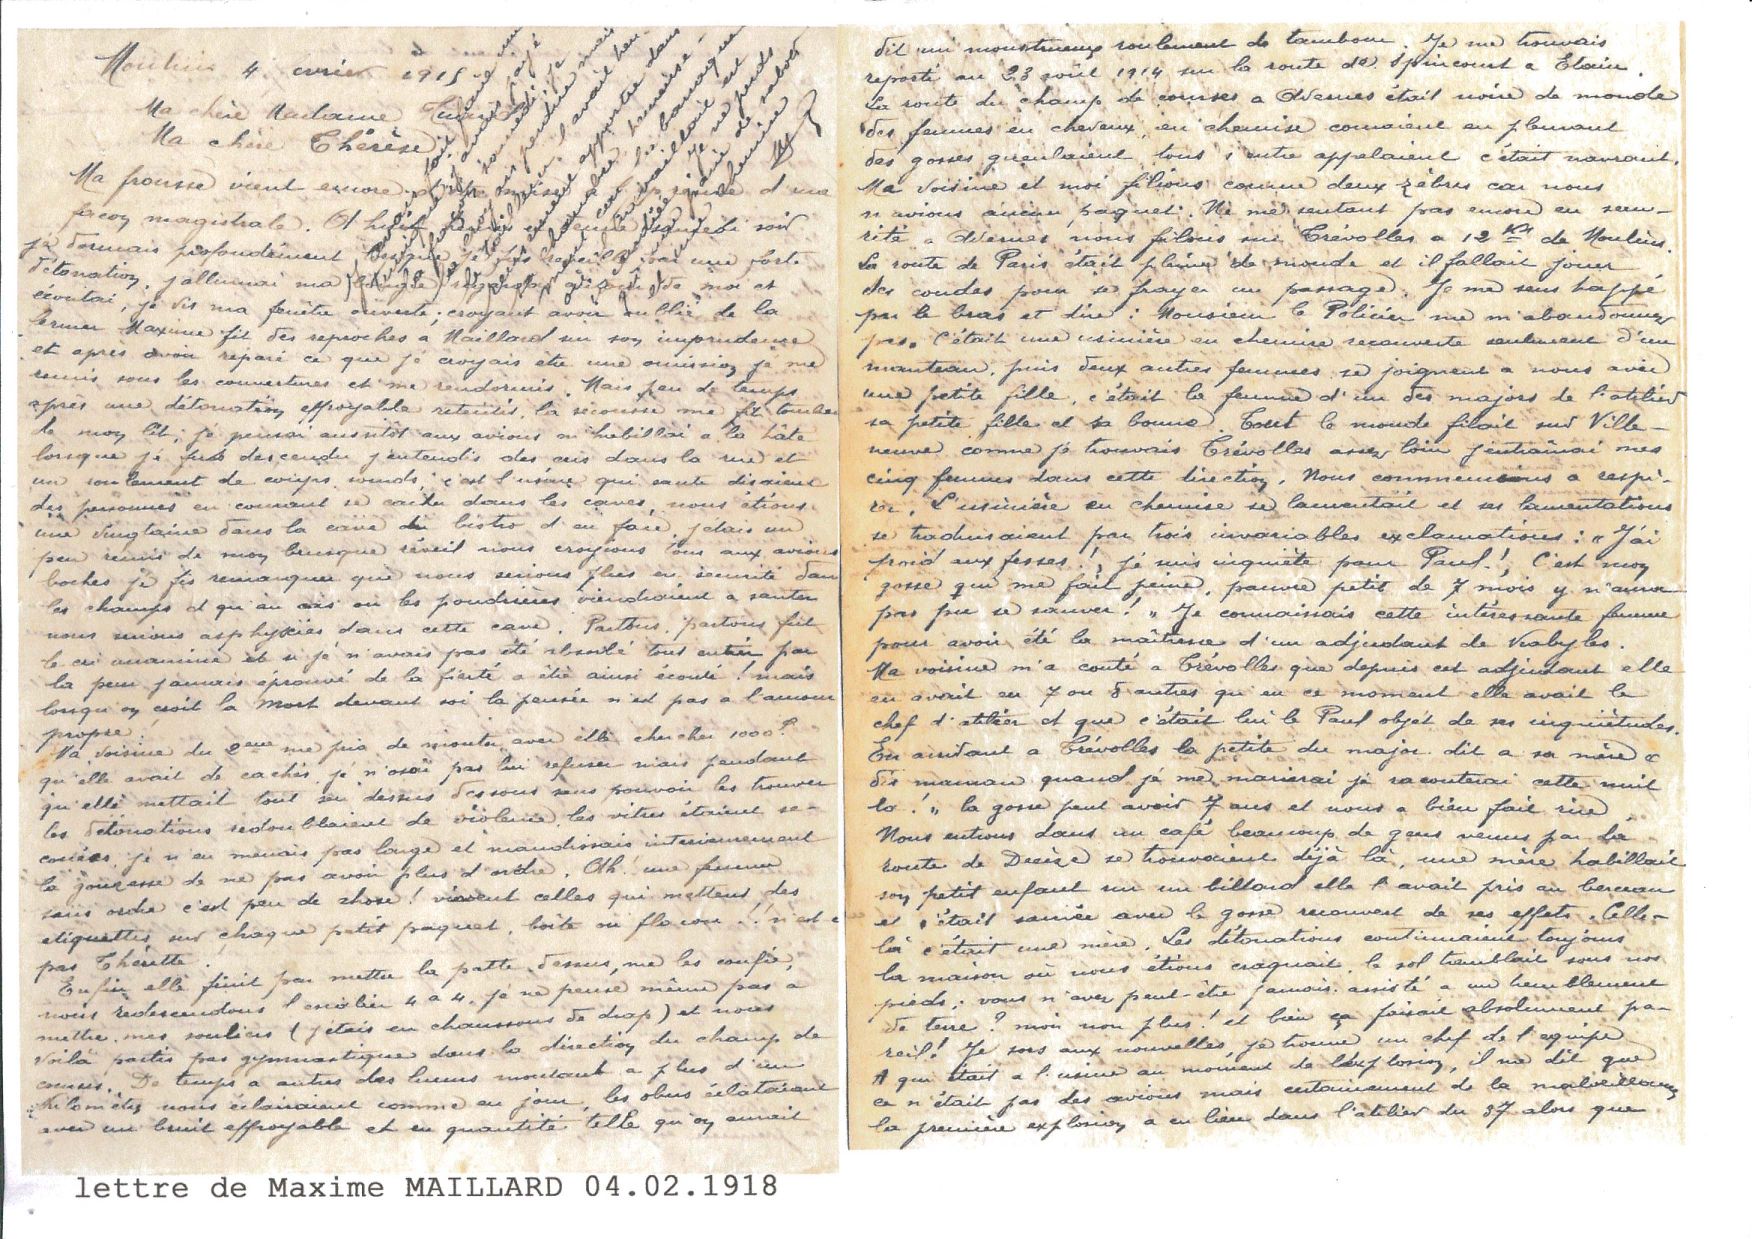 Moulins 4 février 1918
Ma chère Madame
Ma chère Thérèse
Ma frousse vient encore d'une
façon magistrale. samedi soir
je dormais profondément lorsque je fus réveillé par une forte
détonation, j'allumai ma regardai autour de moi et
écoutai, je vis ma fenêtre ouverte; croyant avoir oublié de la
fermer Maxime fit des reproches à Maillard sur son imprudence
et après avoir réparé ce que je croyais être une omission je me
remis sous les couvertures et me rendormis. Mais peu de temps
après une détonation effroyable retentit, la secousse me fit tomber
de mon lit; je pensai aussitôt aux avions m'habillai a la hâte
lorsque je fus descendu j'entendis des cris dans la rue et
un roulement de coups sourds, c'est l'usine qui saute disaient
des personnes en courant se cacher dans les caves, nous étions
une vingtaine dans la cave du bistro d'en face, j'étais un
peu remis de mon brusque réveil nous croyions tous aux avions
boches je fis remarquer que nous serions plus en sécurité dans
les champs et qu'au cas ou les poudrières viendraient a sauter
nous serions asphyxiés dans cette cave. Partons, partons fut
le cri unanime et si je n'avais pas été absorbé tout entier par
la peur jamais éprouvé de la fierté a être ainsi écouté! mais
lorsqu'on croit la mort devant soi la pensée n'est pas a l'amour
propre!
Ma voisine du 2eme me pria de monter avec elle chercher 1000f
qu'elle avait de cachés, je n'osai pas lui refuser mais pendant
qu'elle mettait tout sens dessus dessous sans pouvoir les trouver
les détonations redoublaient de violence, les vitres étaient se-
couées, je n'en menais pas large et maudissais intérieurement
la gonzesse de ne pas avoir plus d'ordre. Oh! une femme
sans ordre c'est peu de chose! vivent celles qui mettent des
étiquettes sur chaque petit paquet, boîte ou flacon!! n'est ce
pas Thérette.
Enfin elle finit par mettre la patte dessus, me les confie,
nous redescendons l'escalier 4 a 4, je ne pense même pas a
mettre mes souliers (j'étais en chaussons de drap) et nous
voilà partis pas gymnastique dans la direction du champ de
courses. De temps a autres des lueurs montant a plus d'un
kilomètre nous éclairaient comme en jour, les obus éclataient
avec un bruit effroyable et en quantité telle qu'on aurait
dit un monstrueux roulement de tambour. Je me trouvais
reporté au 23 août 1914 sur la route de Spincourt a Etain.
La route du champ de courses a Avermes était noire de monde
des femmes en cheveux, en chemise couraient en pleurant
des gosses gueulaient, tous s'entre appelaient c'était navrant.
Ma voisine et moi filions comme deux zèbres car nous
n'avions aucun paquet. Ne me sentant pas encore en sécu-
rité a Avermes nous filons sur Trévolles a 12 Km de Moulins.
La route de Paris était pleine de monde et il fallait jouer
des coudes pour se frayer un passage. Je me sens happé
par le bras et dire: Monsieur le Policier ne m'abandonnez
pas. C'était une usinière en chemise recouverte seulement d'un
manteau, puis deux autres femmes se joignent a nous avec
une petite fille, c'était la femme d'un des majors de l'atelier
sa petite fille et sa bonne. Tout le monde filait sur Ville-
neuve comme je trouvais Trévolles assez loin j'entraînai mes
cinq femmes dans cette direction. Nous commencions a respi-
rer. L'usinière en chemise se lamentait et ses lamentations
se traduisaient par trois invariables exclamations: "J'ai
froid aux fesses!, je suis inquiète pour Paul!, C'est mon
gosse qui me fait peine, pauvre petit de 7 mois y n'aura
pas pu se sauver!" Je connaissais cette intéressante femme
pour avoir été la maîtresse d'un adjudant de Kabyles.
Ma voisine m'a conté a Trévolles que depuis cet adjudant elle
en avait eu 7 ou 8 autres qu'en ce moment elle avait le
chef d'atelier et que c'était lui le Paul objet de ses inquiétudes.
En arrivant a Trévolles la petite du major dit a sa mère "
dis maman quand je me marierai je raconterai cette nuit
là!" la gosse peut avoir 7 ans et nous a bien fait rire
Nous entrons dans un café beaucoup de gens venus par la
route de Decize se trouvaient déjà là, une mère habillait
son petit enfant sur un billard elle l'avait pris au berceau
et s'était sauvée avec le gosse recouvert de ses effets. Celle-
là c'était une mère. Les détonations continuaient toujours
la maison où nous étions craquait, le sol tremblait sous nos
pieds; vous n'avez peut-être jamais assisté a un tremblement
de terre? moi non plus! et bien ça faisait absolument pa-
reil! Je sors aux nouvelles, je trouve un chef de l'équipe
A qui était a l'usine au moment de l'explosion, il me dit que
ce n'était pas des avions mais certainement de la malveillance
la première explosion a eu lieu dans l'atelier du 37 alors que
lettre de Maxime MAILLARD 04.02.1918